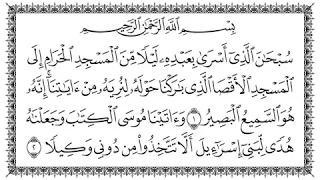 بِسْمِ ٱللَّهِ ٱلرَّحْمَٰنِ ٱلرَّحِيمِ
سُبْحَٰنَ ٱلَّذِىٓ أَسْرَىٰ بِعَبْدِهِۦ لَيْلًا مِّنَ ٱلْمَسْجِدِ ٱلْحَرَامِ إِلَى
ٱلْمَسْجِدِ ٱلْأَقْصَا ٱلَّذِى بَٰرَكْنَا حَوْلَهُۥ لِنُرِيَهُۥ مِنْ ءَايَٰتِنَآ ۚ إِنَّهُۥ
هُوَ ٱلسَّمِيعُ ٱلْبَصِيرُ ١ وَءَاتَيْنَا مُوسَى ٱلْكِتَٰبَ وَجَعَلْنَٰهُ
هُدًى لِّبَنِىٓ إِسْرَٰٓءِيلَ أَلَّا تَتَّخِذُوا۟ مِن دُونِى وَكِيلًا ٢